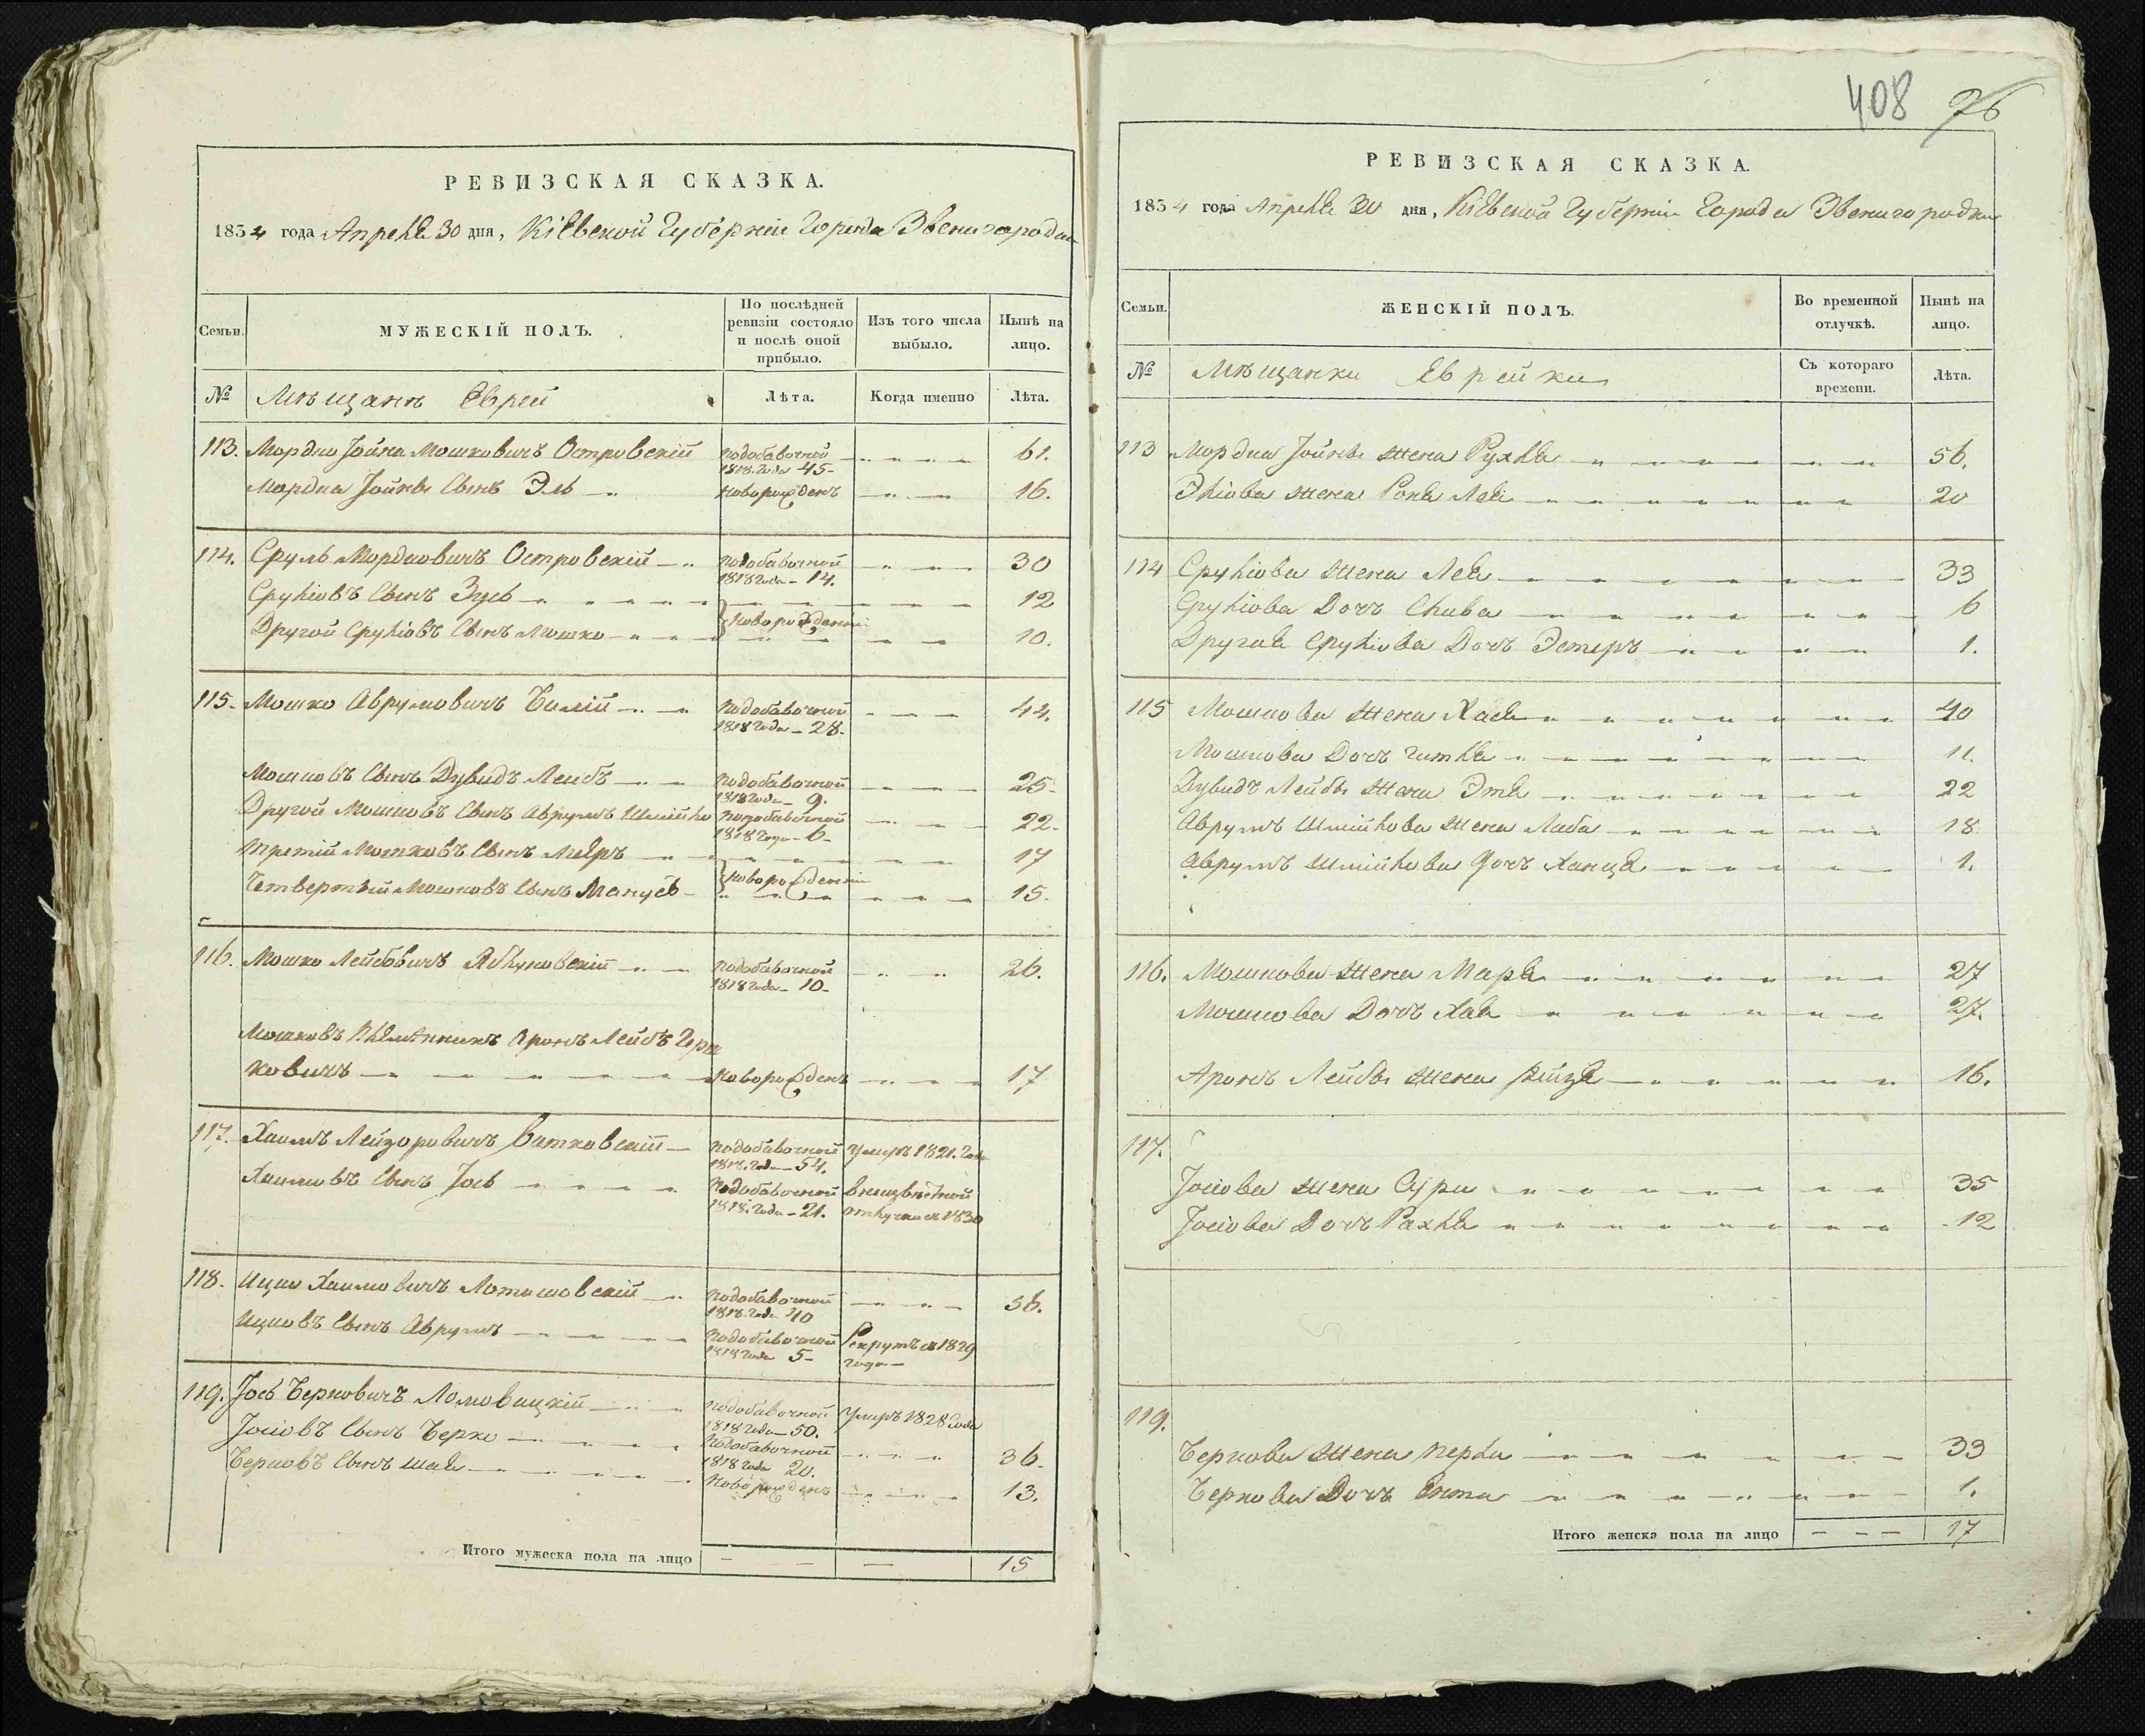 408 76
РЕВИЗСКАЯ СКАЗКА.
1834 года Апреля 30 дня, Кіевской Губерніи Города Звенигородки
Семьи.
МУЖЕСКІЙ ПОЛЪ.
По послѣдней ревизіи состояло и послѣ оной прибыло.
Изъ того числа выбыло.
Нынѣ на лицо.
№ Мѣщанѣ Еврей Лѣта. Когда именно Лѣта.
113. Мордко Іойна Мошковичъ Островскій подобавочной 1818 года 45 61.
Мордка Іойны Сынъ Эль новорожденъ 16.
114. Сруль Мордковичъ Островскій подобавочной 1818 года 14. 30
Сруліовъ Сынъ Зусь 12
новорожденніи
Другой Сруліовъ Сынъ Мошко 10.
115. Мошко Аврумовичъ Билій подобавочной 1818 года 28. 44.
Мошковъ Сынъ Дувидъ Лейбъ подобавочной 1818 года 9. 25.
Другой Мошковъ Сынъ Аврумъ Шмійло подобавочной 1818 года 6 22.
Третій Мошковъ Сынъ Меяръ 17
новорожденніи
Четвертый Мошковъ Сынъ Манусь 15.
116. Мошко Лейбовичъ Яблуновскій подобавочной 1818 года 10 26.
Мошковъ Племянникъ Аронъ Лейбъ Герш
ковичъ новорожденъ 17
117. Хаимъ Лейзоровичъ Витковскій подобавочной 1818 года 54. умеръ 1821. года
Хаимовъ Сынъ Іось подобавочной 1818. года 21. в неизвѣстной отлучки съ 1830
118. Ицко Хаимовичъ подобавочной 1818 года 40 56.
Ицковъ Сынъ Аврумъ подобавочной 1818 года 5 Рекрутъ съ 1829 года
119. Іось Берковичъ Ломовацкій подобавочной 1818 года 50. умеръ 1828 года
Іосіовъ Сынъ Берко подобавочной 1818 года 20. 36.
Берковъ Сынъ Шая новорожденъ 13.
Итого мужеска пола на лицо 15
РЕВИЗСКАЯ СКАЗКА.
1834 года Апреля 30 дня, Кіевской Губерніи Города Звенигородки
Семьи.
ЖЕНСКІЙ ПОЛЪ.
Во временной отлучкѣ.
Нынѣ на лицо.
№ Мѣщанки Еврейки Съ котораго времени. Лѣта.
113 Мордка Іойны жена Рухля 56.
Эліова жена Роня Лея 20
114 Сруліова жена Лея 33
Сруліова Дочъ Слива 6
Другая Сруліова Дочъ Эстеръ 1.
115 Мошкова жена Хая 40
Мошкова Дочъ Гитля 11.
Дувидъ Лейбы жена Этя 22
Аврумъ Шмійлова жена Либа 18
Аврумъ Шмійлова Дочъ Ханця 1.
116. Мошкова жена Маря 27
Мошкова Дочъ Хая 27.
Аронъ Лейбы жена Рійзя 16.
117.
Іосіова жена Сура 35
Іосіова Дочъ Рахля 12
119.
Беркова жена Перла 33
Беркова Дочъ Ента 1.
Итого женска пола на лицо 17